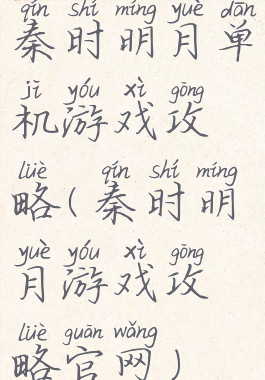 qín shí míng yuè dān
秦时明月单
jī yóu xì gōng
机游戏攻
lüè qín shí míng
略(秦时明
yuè yóu xì gōng
月游戏攻
lüè guān wǎng
略官网)